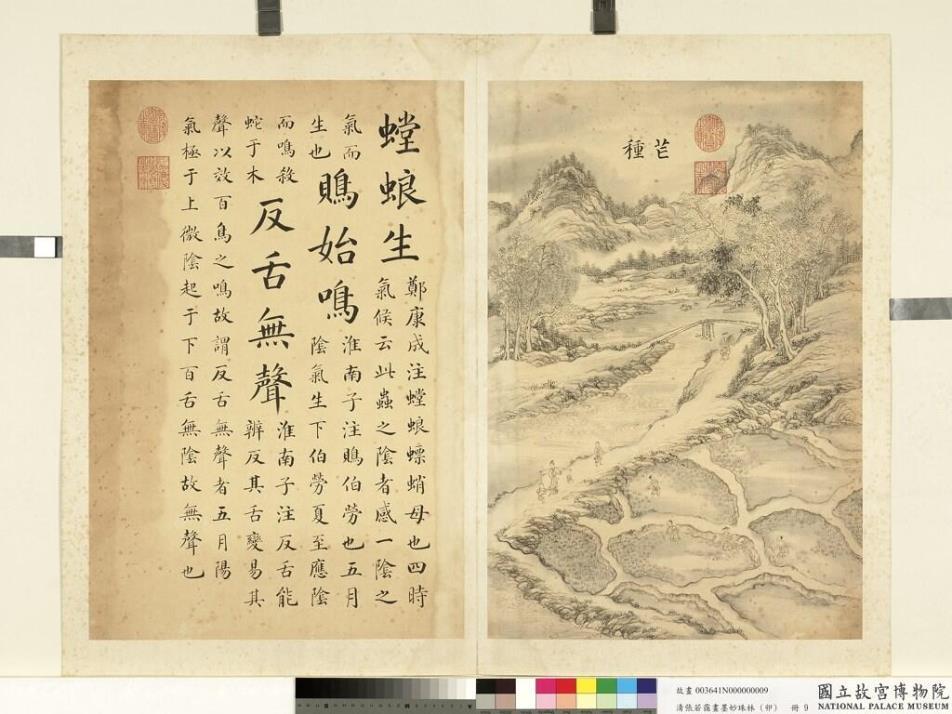 芒種
螳蜋生
鄭康成注螳蜋螵蛸母也四時
氣候云此蟲之陰者感一陰之
氣而
生也
鵙始鳴
淮南子注鵙伯勞也五月
陰氣生下伯勞夏至應陰
而鳴殺
蛇于木
反舌無聲
淮南子注反舌能
辨反其舌變易其
聲以效百鳥之鳴故謂反舌無聲者五月陽
氣極于上微陰起于下百舌無陰故無聲也
故畫 003641N000000009
清張若靄畫墨妙珠林（卯） 冊 9
國立故宮博物院
NATIONAL PALACE MUSEUM